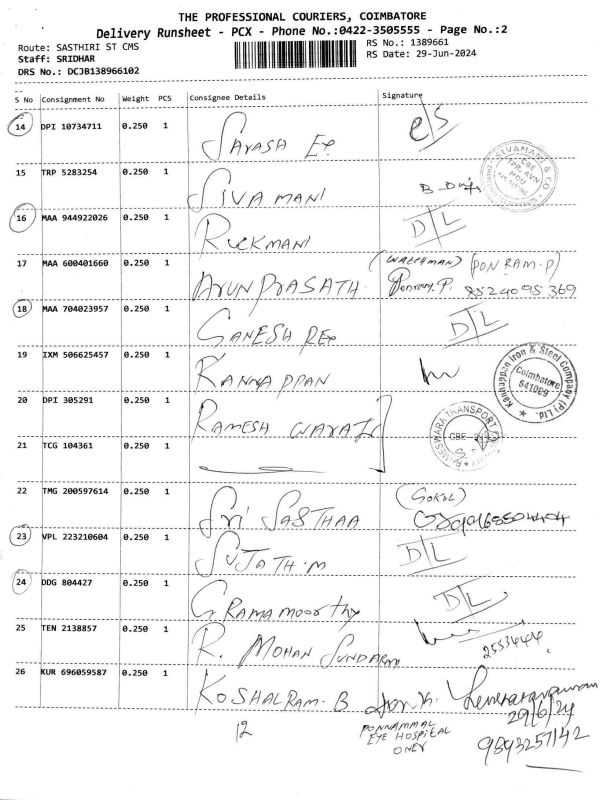 THE PROFESSIONAL COURIERS, COIMBATORE
Delivery Runsheet - PCX - Phone No.:0422-3505555 - Page No.:2
Route: SASTHIRI ST CMS
RS No.: 1389661
Staff: SRIDHAR
RS Date: 29-Jun-2024
DRS No.: DCJB138966102
S No Consignment No Weight PCS Consignee Details Signature
14 DPI 10734711 0.250 1
15 TRP 5283254 0.250 1 SIVA MANI
SIVAMANI & CO
16 MAA 944922026 0.250 1 RUCKMANI D/L
17 MAA 600401660 0.250 1 ARUN PRASATH (WATCHMAN) (PONRAM.P)
Ponram.P. 8524095369
18 MAA 704023957 0.250 1 GANESH REX D/L
19 IXM 506625457 0.250 1 KANNAPPAN
Kannappan Iron & Steel Company (P) Ltd.
Coimbatore
641009
20 DPI 305291 0.250 1 RAMESH
RAMESWARA TRANSPORT
CBE
21 TCG 104361 0.250 1
22 TMG 200597614 0.250 1 Sri SASTHAA (GOKUL)
23 VPL 223210604 0.250 1 SUJATH.M D/L
24 DDG 804427 0.250 1 G. RAMAMOORTHY D/L
25 TEN 2138857 0.250 1 R. MOHAN SUNDARAM
2553444
26 KUR 696059587 0.250 1 KOSHALRAM.B
29/6/24
12
PONNAMMAL
EYE HOSPITAL
9893257142